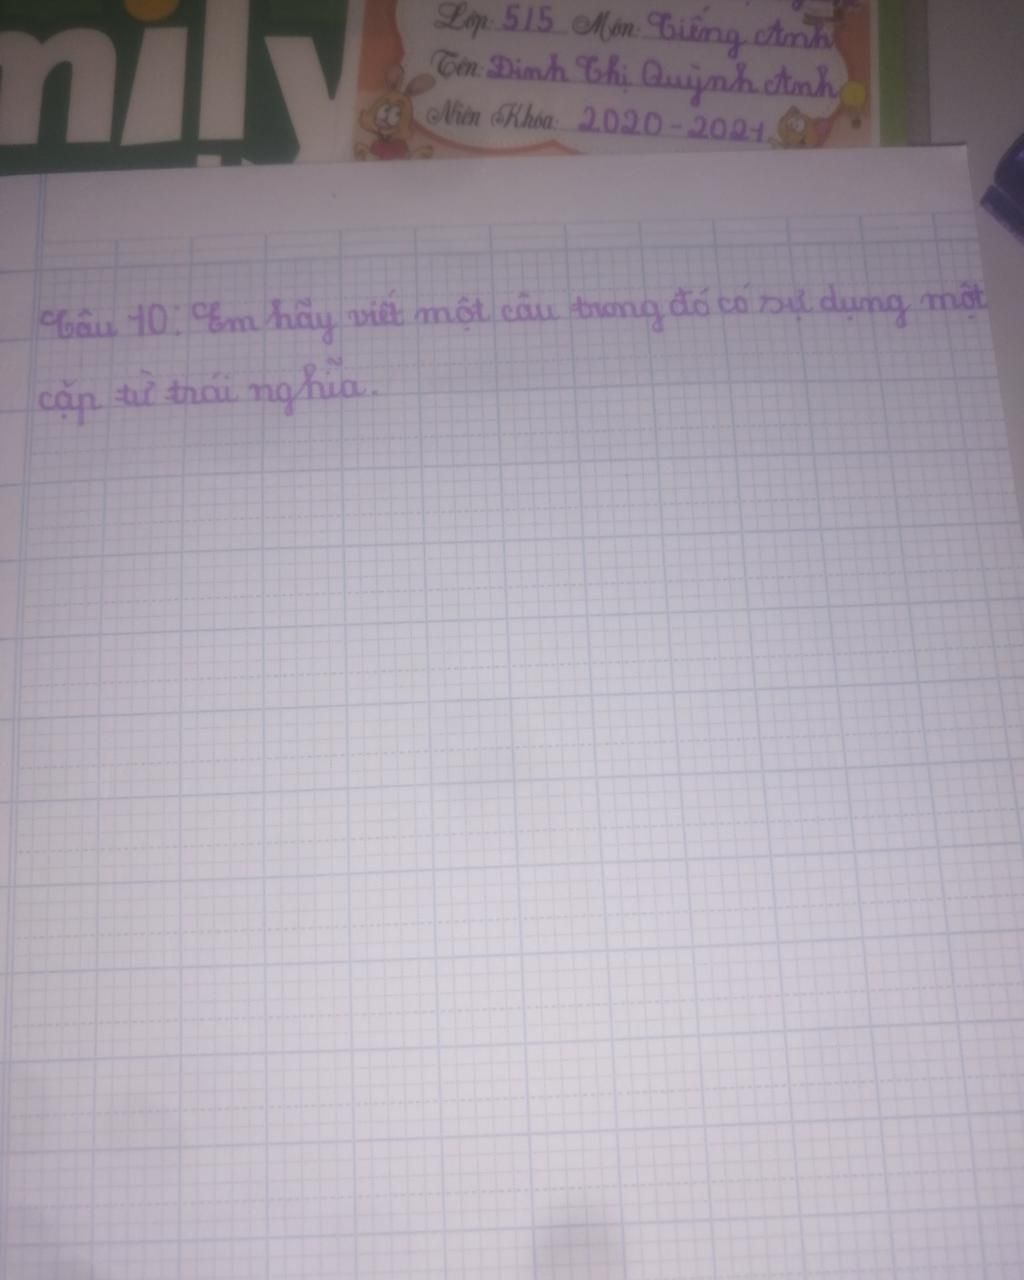 mily
Lớp: 5/5 Môn: Tiếng Anh
Tên: Đinh Thị Quỳnh Anh
Niên Khóa: 2020-2021
Câu 10: Em hãy viết một câu trong đó có sự dụng một
cặp từ trái nghĩa.